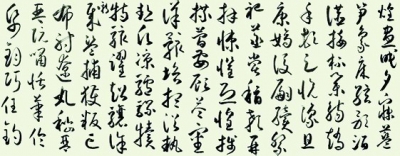 煌晝眠夕寐藍
筍象床弦歌酒
讌接杯舉觴矯
手頓足悅豫且
康嫡後嗣續祭
祀蒸嘗稽顙再
拜悚懼恐惶牋
牒簡要顧答審
詳骸垢想浴執
熱願涼驢騾犢
特駭躍超驤誅
斬賊盜捕獲叛亡
布射遼丸嵇琴
阮嘯恬筆倫
紙鈞巧任釣